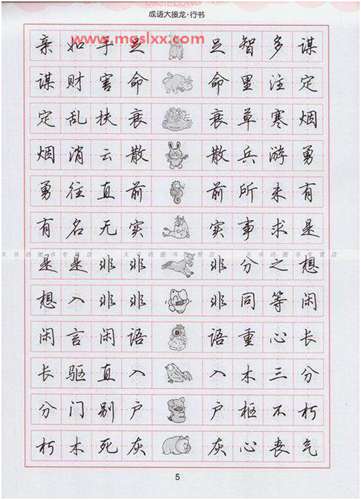 成语大接龙·行书
www.mgslxx.com
亲如手足 足智多谋
谋财害命 命里注定
定乱扶衰 衰草寒烟
烟消云散 散兵游勇
勇往直前 前所未有
有名无实 实事求是
是是非非 非分之想
想入非非 非同等闲
闲言闲语 语重心长
长驱直入 入木三分
分门别户 户枢不朽
朽木死灰 灰心丧气
5